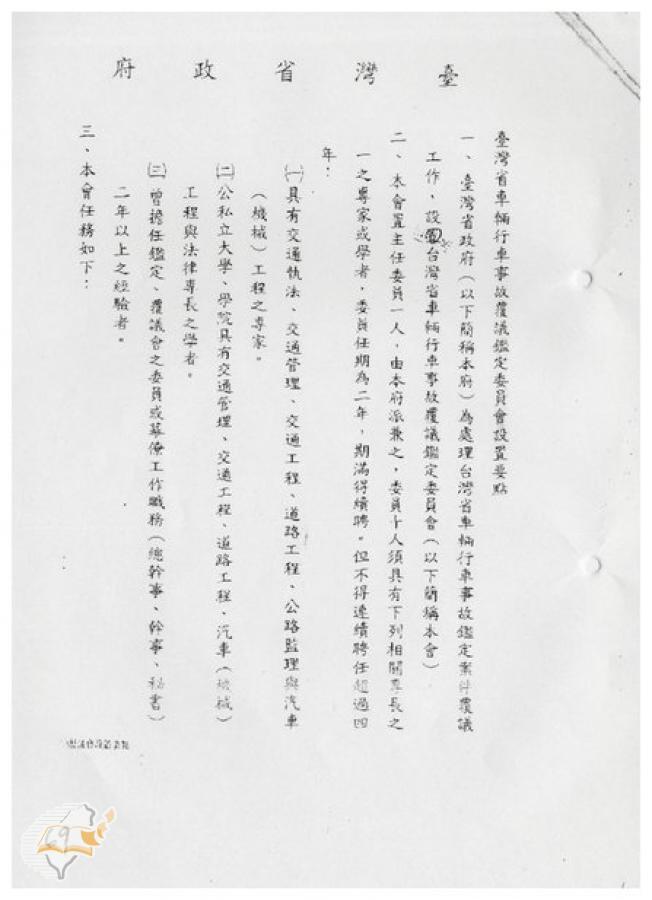 臺灣省政府
臺灣省車輛行車事故覆議鑑定委員會設置要點
一、臺灣省政府（以下簡稱本府）為處理台灣省車輛行車事故鑑定案件覆議
工作，設置台灣省車輛行車事故覆議鑑定委員會（以下簡稱本會）
二、本會置主任委員一人，由本府派兼之，委員十人須具有下列相關專長之
一之專家或學者，委員任期為二年，期滿得續聘。但不得連續聘任超過四
年：
㈠具有交通執法、交通管理、交通工程、道路工程、公路監理與汽車
（機械）工程之專家。
㈡公私立大學、學院具有交通管理、交通工程、道路工程、汽車（機械）
工程與法律專長之學者。
㈢曾擔任鑑定、覆議會之委員或幕僚工作職務（總幹事、幹事、秘書）
二年以上之經驗者。
三、本會任務如下：